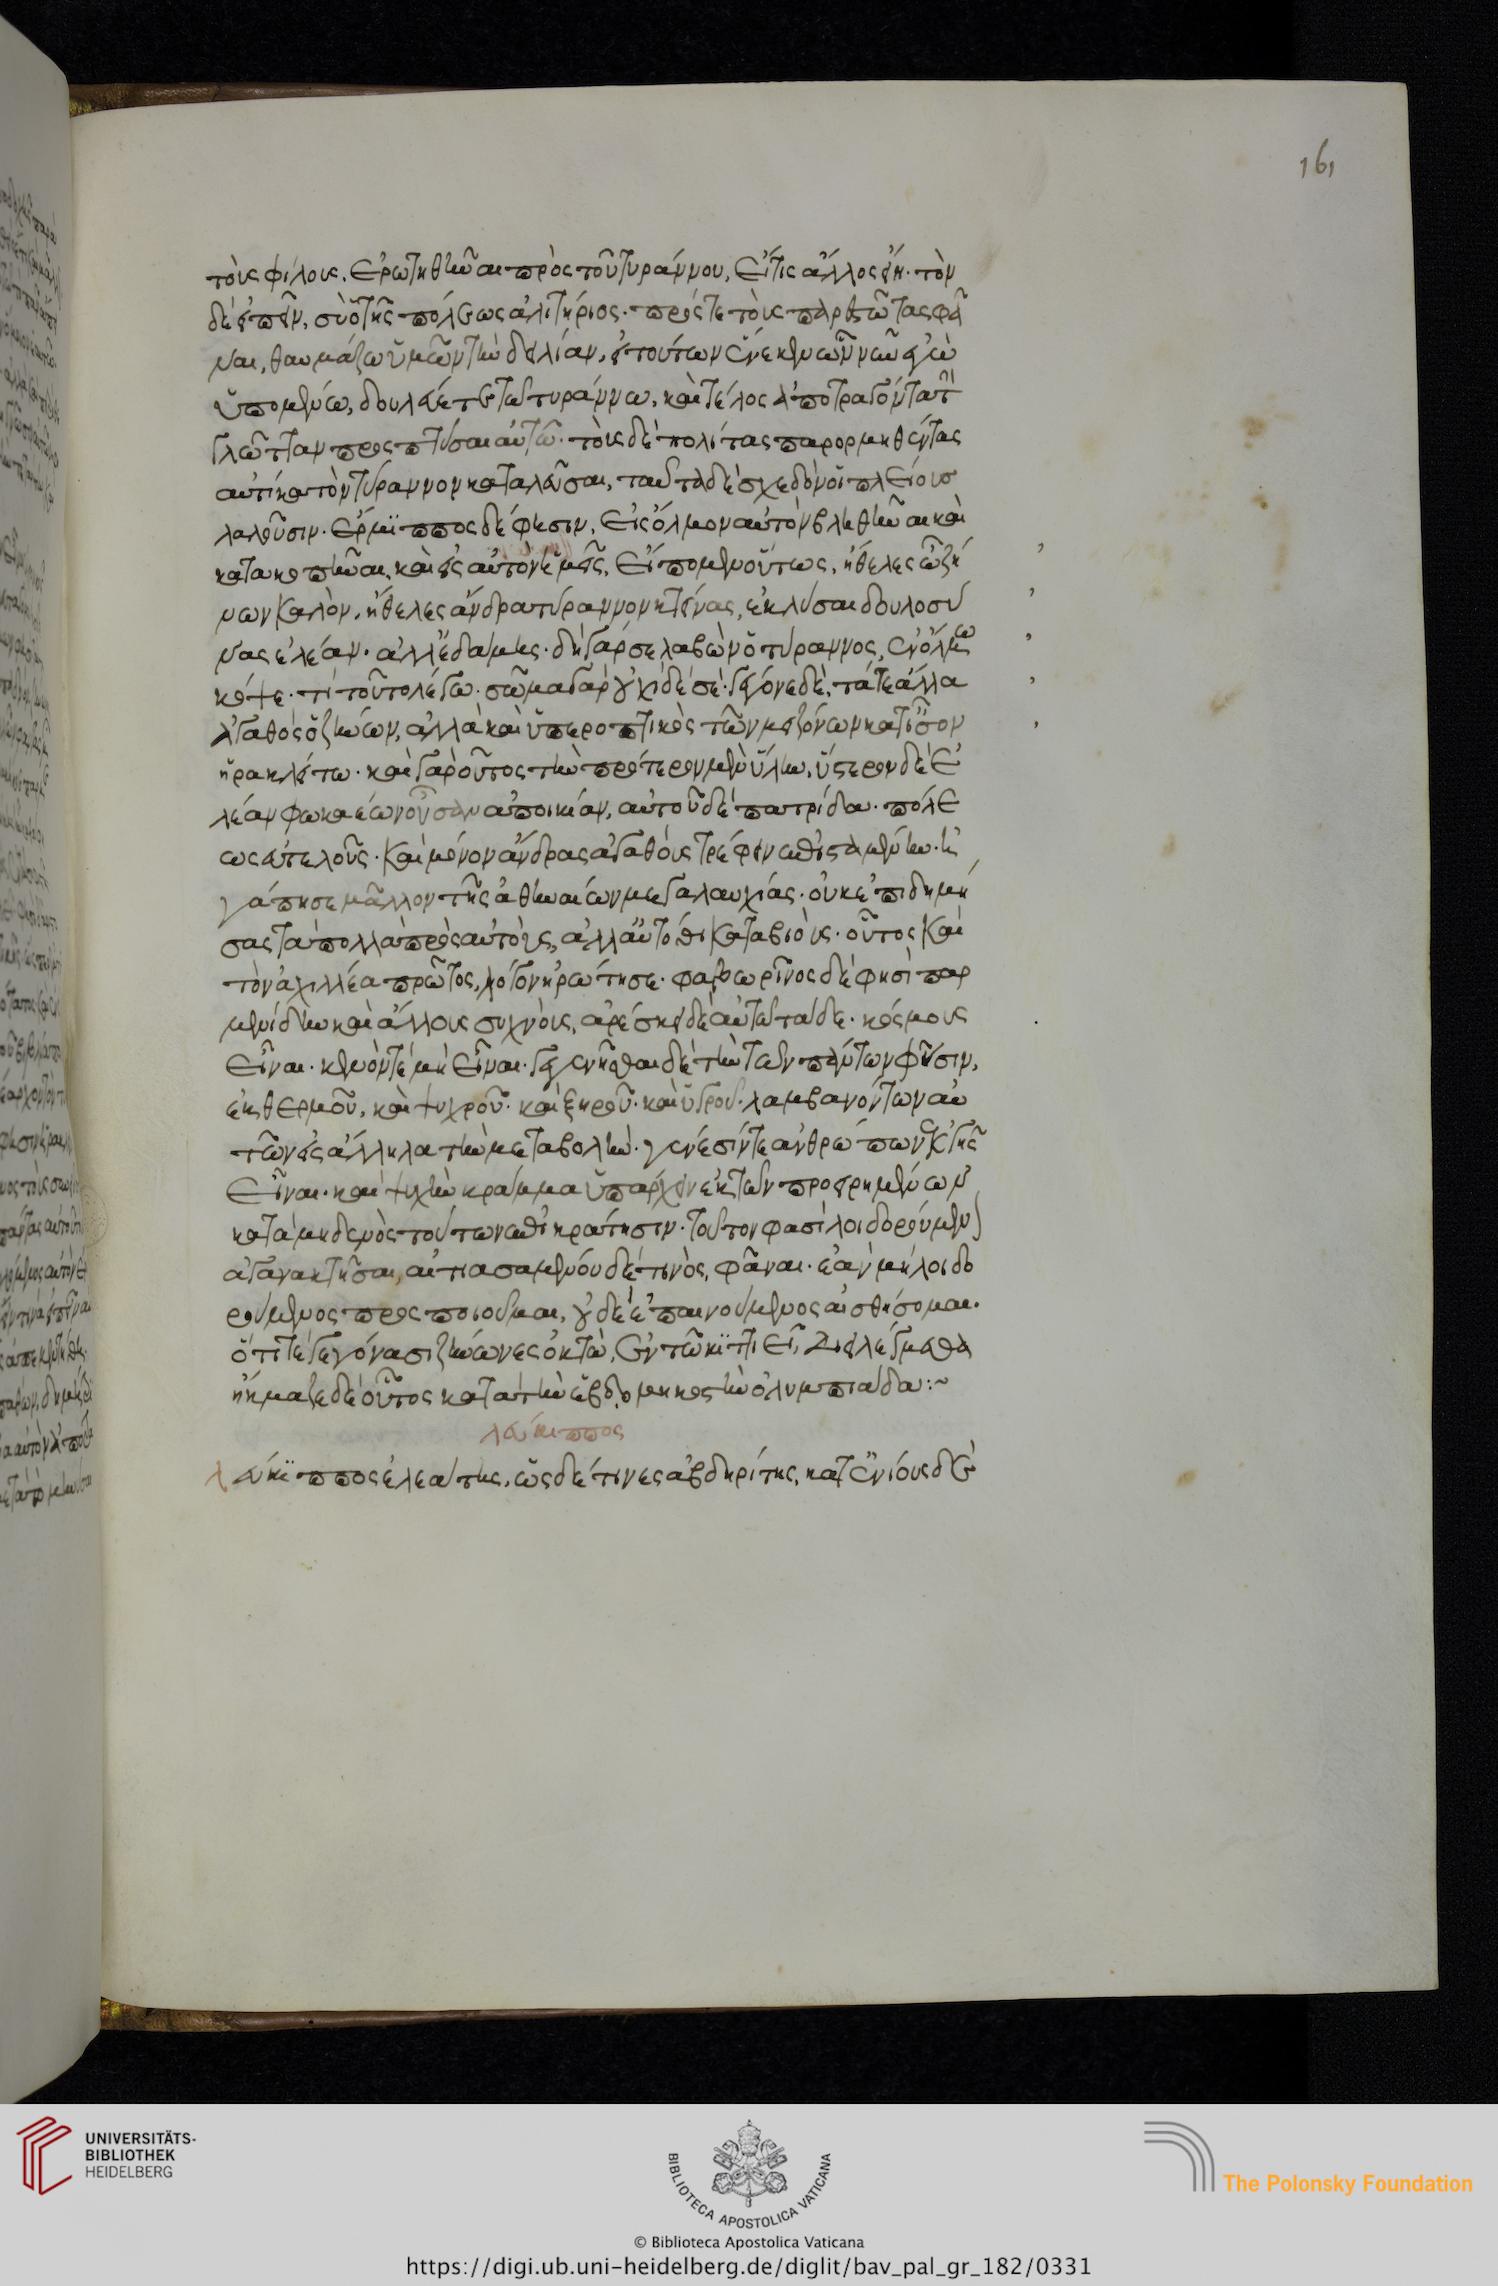 161
τοὺς φίλους. Ἐρωτηθῆναι πρὸς τοῦ τυράννου, Εἴ τις ἄλλος εἴη. τὸν
δὲ εἰπεῖν, σὺ ὁ τῆς πόλεως ἀλιτήριος. πρός τε τοὺς παρεστῶτας φά
ναι, θαυμάζω ὑμῶν τὴν δειλίαν, εἰ τούτων ἕνεκεν ὧν νῦν ἐγὼ
ὑπομένω, δουλεύετε τῷ τυράννω. καὶ τέλος ἀποτραγόντα τὴν
γλῶτταν προσπτύσαι αὐτῶ. τοὺς δὲ πολίτας παρορμηθέντας
αὐτίκα τὸν τύραννον καταλεῦσαι, ταυτὰ δὲ σχεδὸν οἱ πλείους
λαλοῦσιν. Ἕρμιππος δέ φησιν, Εἰς ὅλμον αὐτὸν βληθῆναι καὶ
κατακοπῆναι. καὶ εἰς αὐτὸν ἡμεῖς, Εἴπομεν οὕτως. ἤθελες ὦ ζή
νων καλὸν. ἤθελες ἄνδρα τύραννον κτείνας, ἐκλύσαι δουλοσύ
νας ἐλέαν. ἀλλ' ἐδάμης. δὴ γάρ σε λαβὼν ὁ τύραννος, ἐν ὅλμω
κόψε. τί τοῦτο λέγω. σῶμα γὰρ οὐχὶ δέ σέ. γέγονε δὲ, τά τε ἄλλα
ἀγαθὸς ὁ ζήνων, ἀλλὰ καὶ ὑπεροπτικὸς τῶν μειζόνων κατ' ἴσον
ἡρακλείτω. καὶ γὰρ οὗτος τὴν πρότερον μὲν ὕλην, ὕστερον δὲ Ἐ
λέαν φωκαέων οὖσαν ἀποικίαν, αὐτοῦ δὲ πατρίδα. πόλε
ως εὐτελοῦς. καὶ μόνον ἄνδρας ἀγαθοὺς τρέφειν ἐπισταμένην. ἠ
γάπησε μᾶλλον τῆς ἀθηναίων μεγαλαυχίας. οὐκ ἐπιδημή
σας τὰ πολλὰ πρὸς αὐτοὺς, ἀλλ' αὐτόθι καταβιοὺς. οὗτος καὶ
τὸν ἀχιλλέα πρῶτος, λόγον ἠρώτησε. φαβωρῖνος δέ φησὶ παρ
μενίδην καὶ ἄλλους συχνοὺς, ἀρέσκει δὲ αὐτῶ τάδε. κόσμους
Εἶναι. κενόν τε μὴ Εἶναι. γεγενῆσθαι δὲ τὴν τῶν πάντων φύσιν,
ἐκ θερμοῦ, καὶ ψυχροῦ. καὶ ξηροῦ. καὶ ὑγροῦ. λαμβανόντων αὐ
τῶν εἰς ἄλληλα τὴν μεταβολήν. γένεσίν τε ἀνθρώπων ἐκ γῆς
Εἶναι. καὶ ψυχὴν κράμμα ὑπάρχειν ἐκ τῶν προειρημένων
κατὰ μηδενὸς τούτων ἐπικράτησιν. τοῦτον φασὶ λοιδορούμενον
ἀγανακτῆσαι, αἰτιασαμένου δέ τινὸς, φᾶναι. ἐὰν μὴ λοιδο
ρούμενος προσποιοῦμαι, οὐδὲ ἐπαινούμενος αἰσθήσομαι.
ὅτι τε γεγόνασι ζήνωνες ὀκτὼ, ἐν τῶ κιτιεῖ διειλέγμεθα
ἤκμαζε δὲ οὗτος κατὰ τὴν ἑβδομηκοστὴν ὀλυμπιάδα:~
λεύκιππος
λεύκιππος ἐλεάτης, ὥς δέ τινες ἀβδηρίτης, κατ' ἐνίους δὲ
UNIVERSITÄTS-
BIBLIOTHEK
HEIDELBERG
BIBLIOTECA APOSTOLICA VATICANA
The Polonsky Foundation
© Biblioteca Apostolica Vaticana
https://digi.ub.uni-heidelberg.de/diglit/bav_pal_gr_182/0331